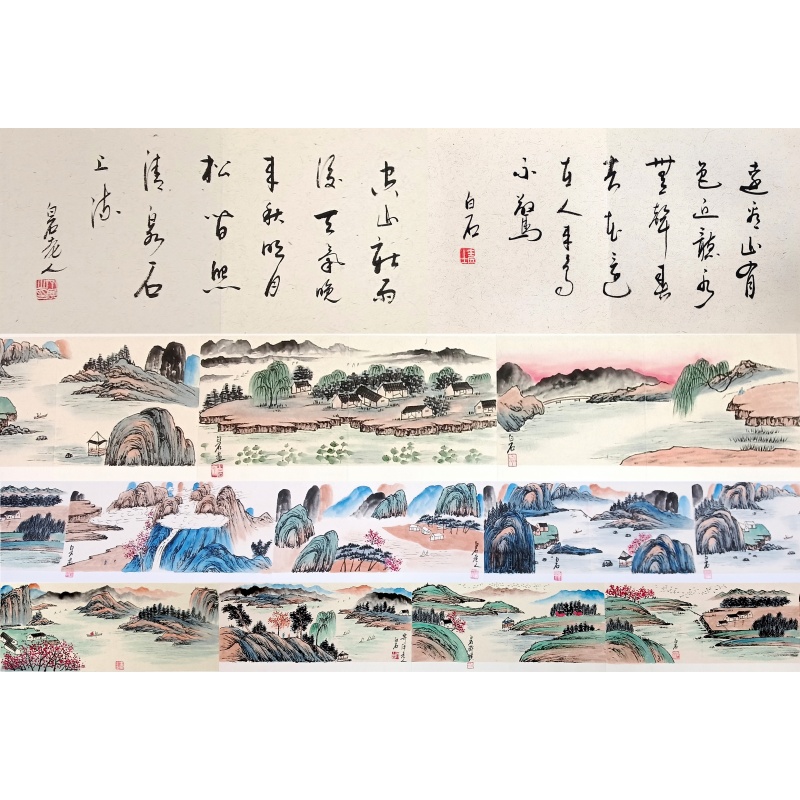 遠看山有
色近聽水
無聲春
去花還
在人來鳥
不驚
白石
空山新雨
後天氣晚
來秋明月
松間照
清泉石
上流
白石老人
白石
白石
白石